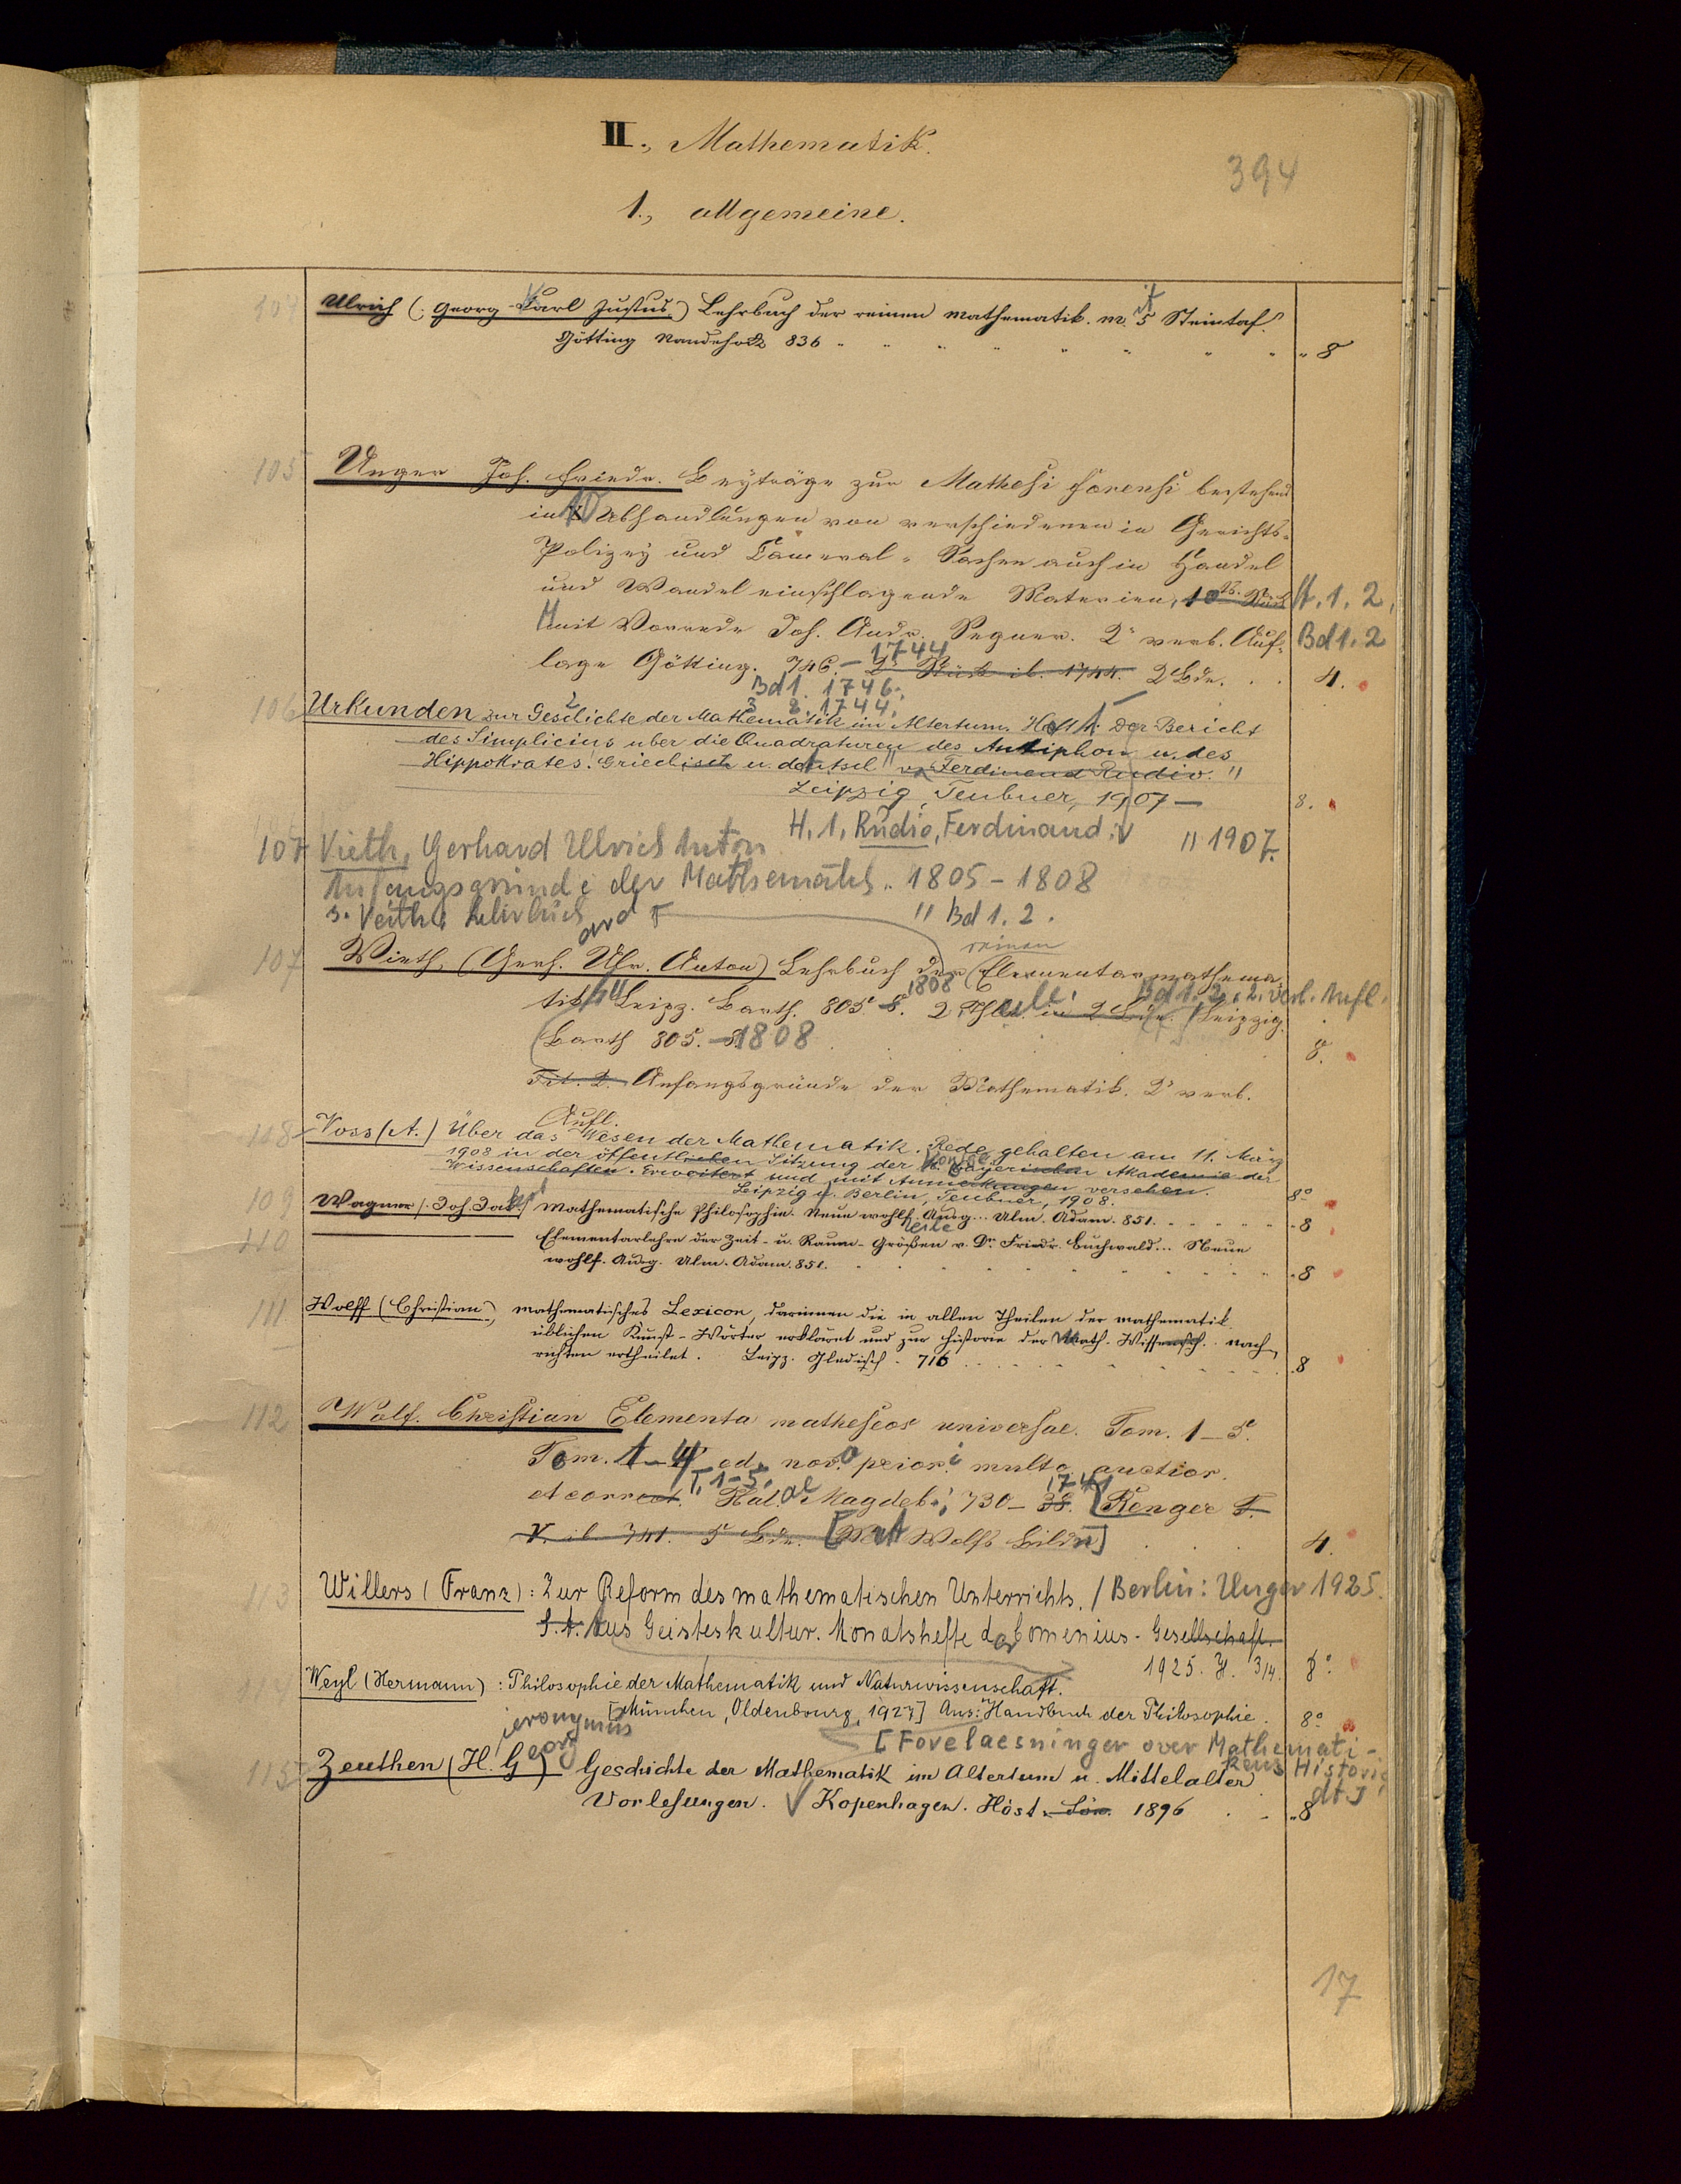 II., Mathematik.
394
1., allgemeine.
104 Ulrich (Georg Karl Justus) Lehrbuch der reinen Mathematik. mit 5 Steintaf.
Götting Vandehock 836 " 8
105 Unger Joh. Friedr. Beyträge zur Mathesi forensi bestehend
in 10 Abhandlungen von verschiedenen in Gerichts-
Polizey und Cameral-Sachen auch in Handel
und Wandel einschlagende Materien, 10 H. 1. 2,
Mit Vorrede Joh. Andr. Segner. 2" verb. Auf- Bd 1. 2
lage Götting. 746. - 1744 2 Stück ib. 1744. 2 Bde. 4.
Bd 1. 1746.
2 1744.
106 Urkunden zur Geschichte der Mathematik im Altertum. Heft 1. Der Bericht
des Simplicius uber die Quadraturen des Antiphon u. des
Hippokrates. Griechisch u. deutsch v. Ferdinand Rudio. "
Leipzig, Teubner, 1907 — 8.
H. 1, Rudio, Ferdinand: " 1907.
107 Vieth, Gerhard Ulrich Anton
Anfangsgründe der Mathematik. 1805-1808
s. Vieth: Lehrbuch " Bd 1. 2.
107 Vieth, (Gerh. Ulr. Anton) Lehrbuch der reinen (Elementarmathema-
tik) Leipz. Barth. 805-8. 1808 2 Thle. in 2 Bde. Bd 1. 2, 2. verb. Aufl. Leipzig.
Barth 805.-1808 8.
Tit. 2. Anfangsgründe der Mathematik. 2" verb.
Aufl.
108 Voss (A.) Über das Wesen der Mathematik. Rede gehalten am 11. März
1908 in der öffentlichen Sitzung der K. Bayerischen Akademie der
Wissenschaften. Erweitert und mit Anmerkungen versehen.
Leipzig u. Berlin, Teubner, 1908. 8°
109 Wagner (Joh. Jakob) Mathematische Philosophie. Neue wohlf. Ausg... Ulm. Adam. 851. 8
110 Elementarlehre der Zeit- u. Raum-Größen v. Dr. Friedr. Buchwald... Neue
wohlf. Ausg. Ulm. Adam. 851. 8
111 Wolff (Christian), mathematisches Lexicon, darinnen die in allen Theilen der mathematik
üblichen Kunst-Wörter erkläret und zur Historie der Math. Wissensch. nach-
richten ertheilet. Leipz. Gleditsch. 716 8
112 Wolf. Christian Elementa matheseos universae. Tom. 1-5.
Tom. 1-4 ed. nova priori multo auctior.
et correct. T. 1-5. Hal. Magdeb.; 730-38. 1741 Renger T.
V. ib. 741. 5 Bde. [Mit Wolfs Bildn]. 4.
113 Willers (Franz): Zur Reform des mathematischen Unterrichts. / Berlin: Unger 1925.
S. A. Aus Geisteskultur. Monatshefte der Comenius-Gesellschaft.
1925. H. 3/4. 8°
114 Weyl (Hermann): Philosophie der Mathematik und Naturwissenschaft.
[München, Oldenbourg, 1927] Aus: Handbuch der Philosophie. 8°
[Forelaesninger over Mathemati-
kens Historie
dt]
115 Zeuthen (H. G.) ieronymus eorg Geschichte der Mathematik im Altertum u. Mittelalter
Vorlesungen. Kopenhagen. Höst u. Sön. 1896 8
17